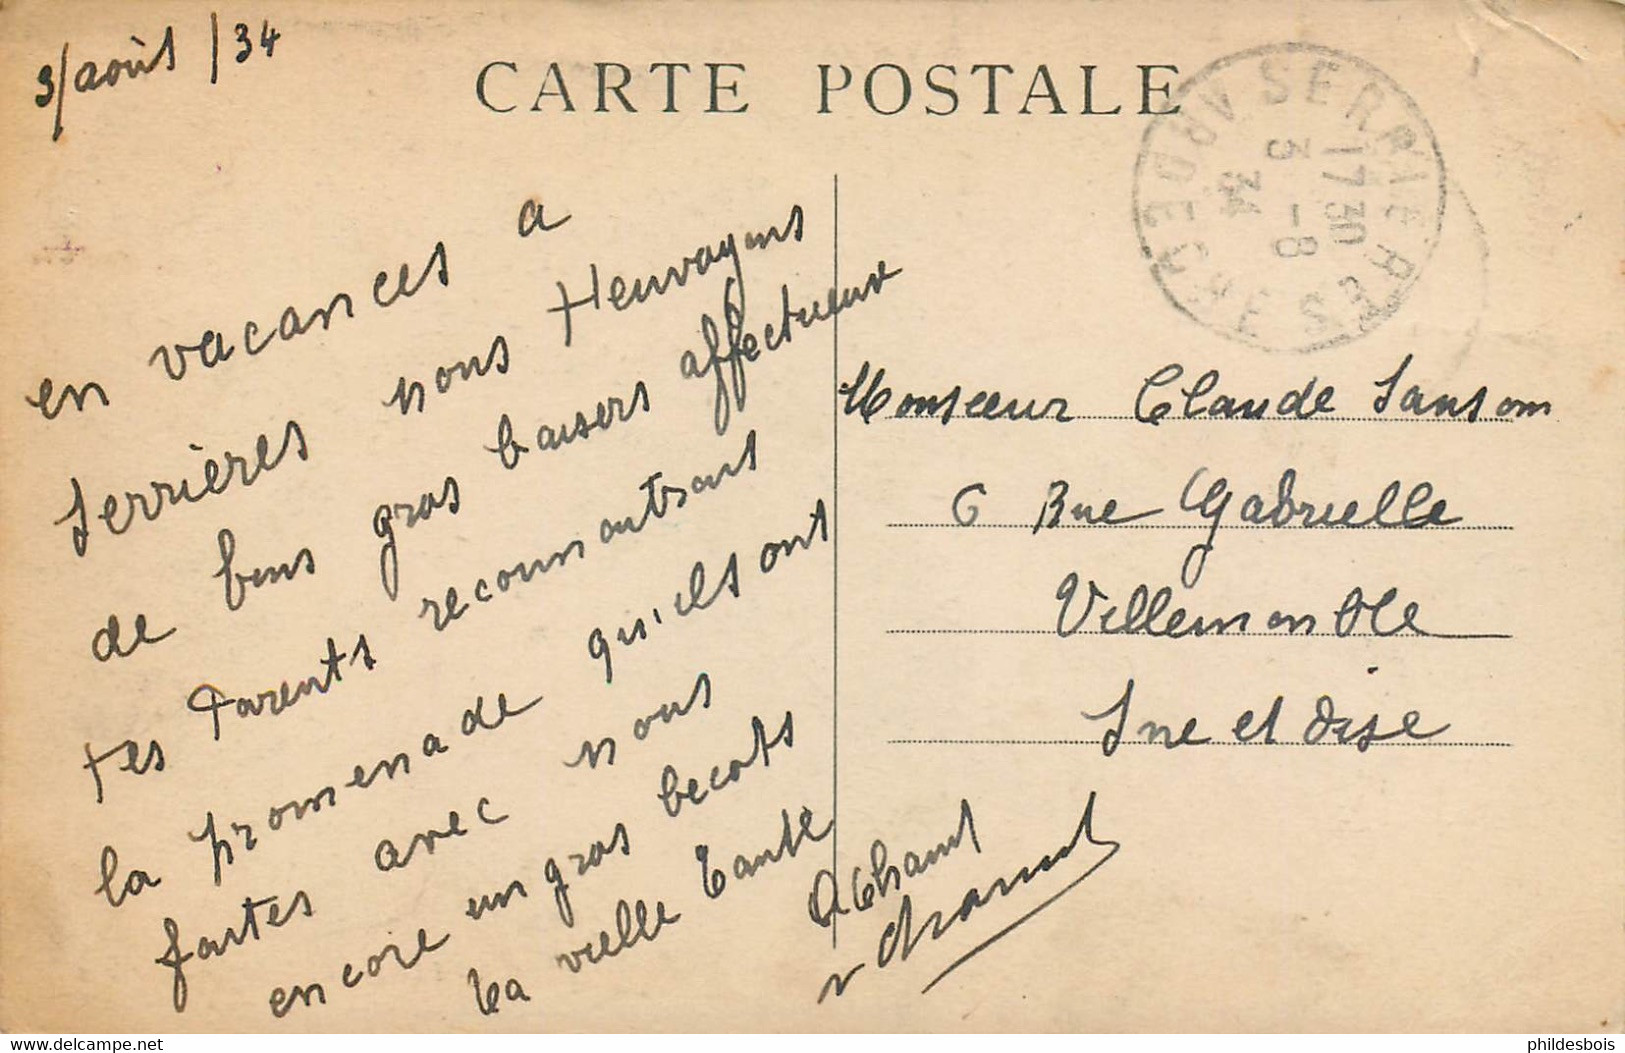 3/août/34
CARTE POSTALE
SERRIERES
ARDECHE
1730
3-8
34
en vacances a
Serrières nous t'envoyons
de bons gros baisers affectueux
tes Parents raconnontront
la promenade qu'ils ont
faites avec nous
encore un gros becots
ta vieille tante
Monsieur Claude Sansom
6 Rue Gabrielle
Villemonble
Sne et Oise
phildesbois